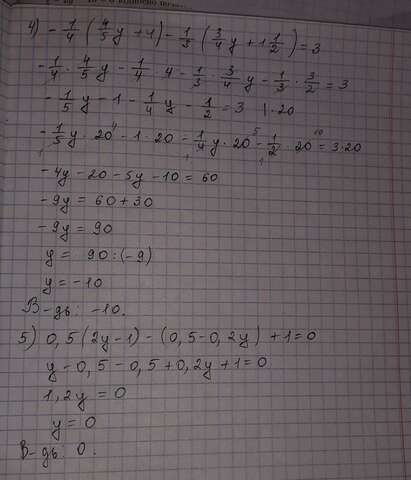 4) - 1/4 (4/5 y + 4) - 1/3 (3/4 y + 1 1/2) = 3
- 1/4 · 4/5 y - 1/4 · 4 - 1/3 · 3/4 y - 1/3 · 3/2 = 3
- 1/5 y - 1 - 1/4 y - 1/2 = 3 | · 20
- 1/5 y · 20 4 - 1 · 20 - 1/4 y · 20 5 - 1/2 · 20 10 = 3 · 20
- 4y - 20 - 5y - 10 = 60
- 9y = 60 + 30
- 9y = 90
y = 90 : (-9)
y = - 10
В-дь: -10.
5) 0,5(2y-1) - (0,5-0,2y) + 1 = 0
y - 0,5 - 0,5 + 0,2y + 1 = 0
1,2y = 0
y = 0
В-дь: 0.